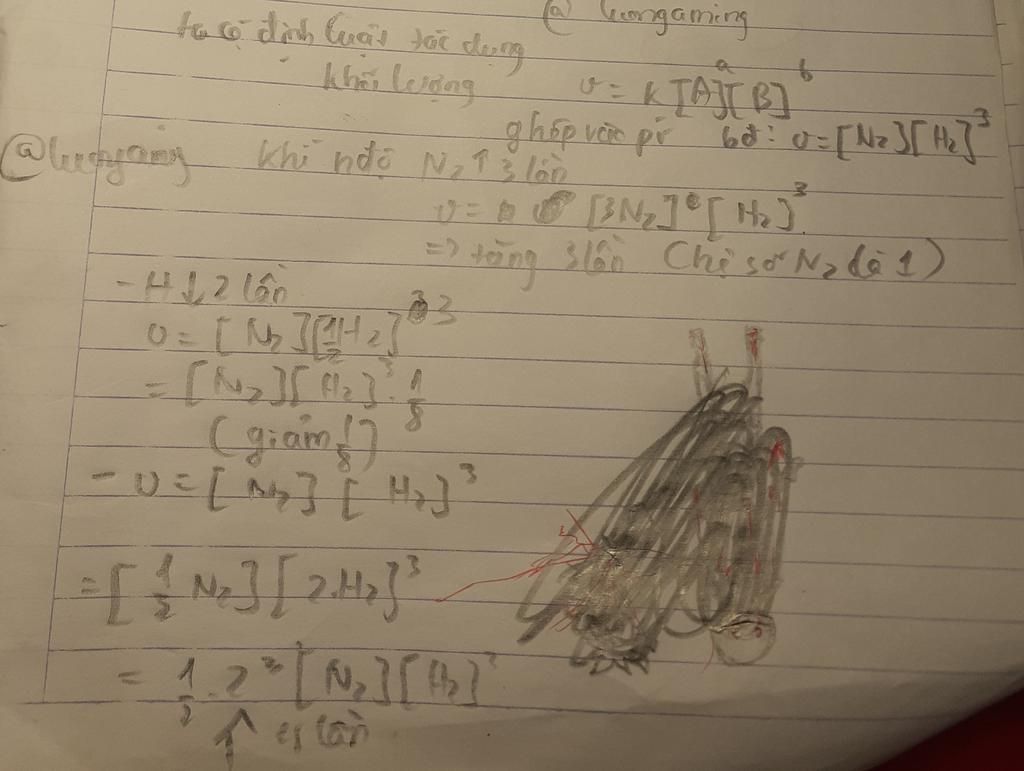 @ luongaming
ta có định luật tác dụng
khối lượng v = k [A]ᵃ[B]ᵇ
ghép vào pứ bđ: v=[N₂][H₂]³
@luongaming khi nđộ N₂↑3 lần
v = [3N₂] [H₂]³
=> tăng 3 lần (hệ số N₂ là 1)
- H↓2 lần
v = [N₂][½H₂]³
= [N₂][H₂]³.⅛
(giảm ⅛)
- v = [N₂] [H₂]³
= [½ N₂][2.H₂]³
= ½.2³[N₂][H₂]³
↑ lần